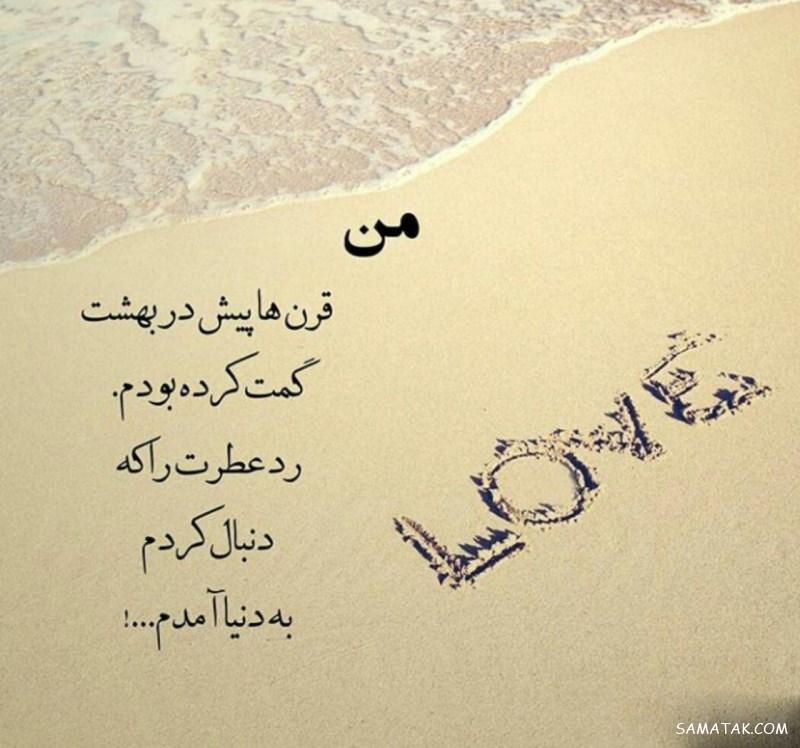 من
قرن ها پیش در بهشت
گمت کرده بودم.
رد عطرت را که
دنبال کردم
به دنیا آمدم...!
LOVE
SAMATAK.COM